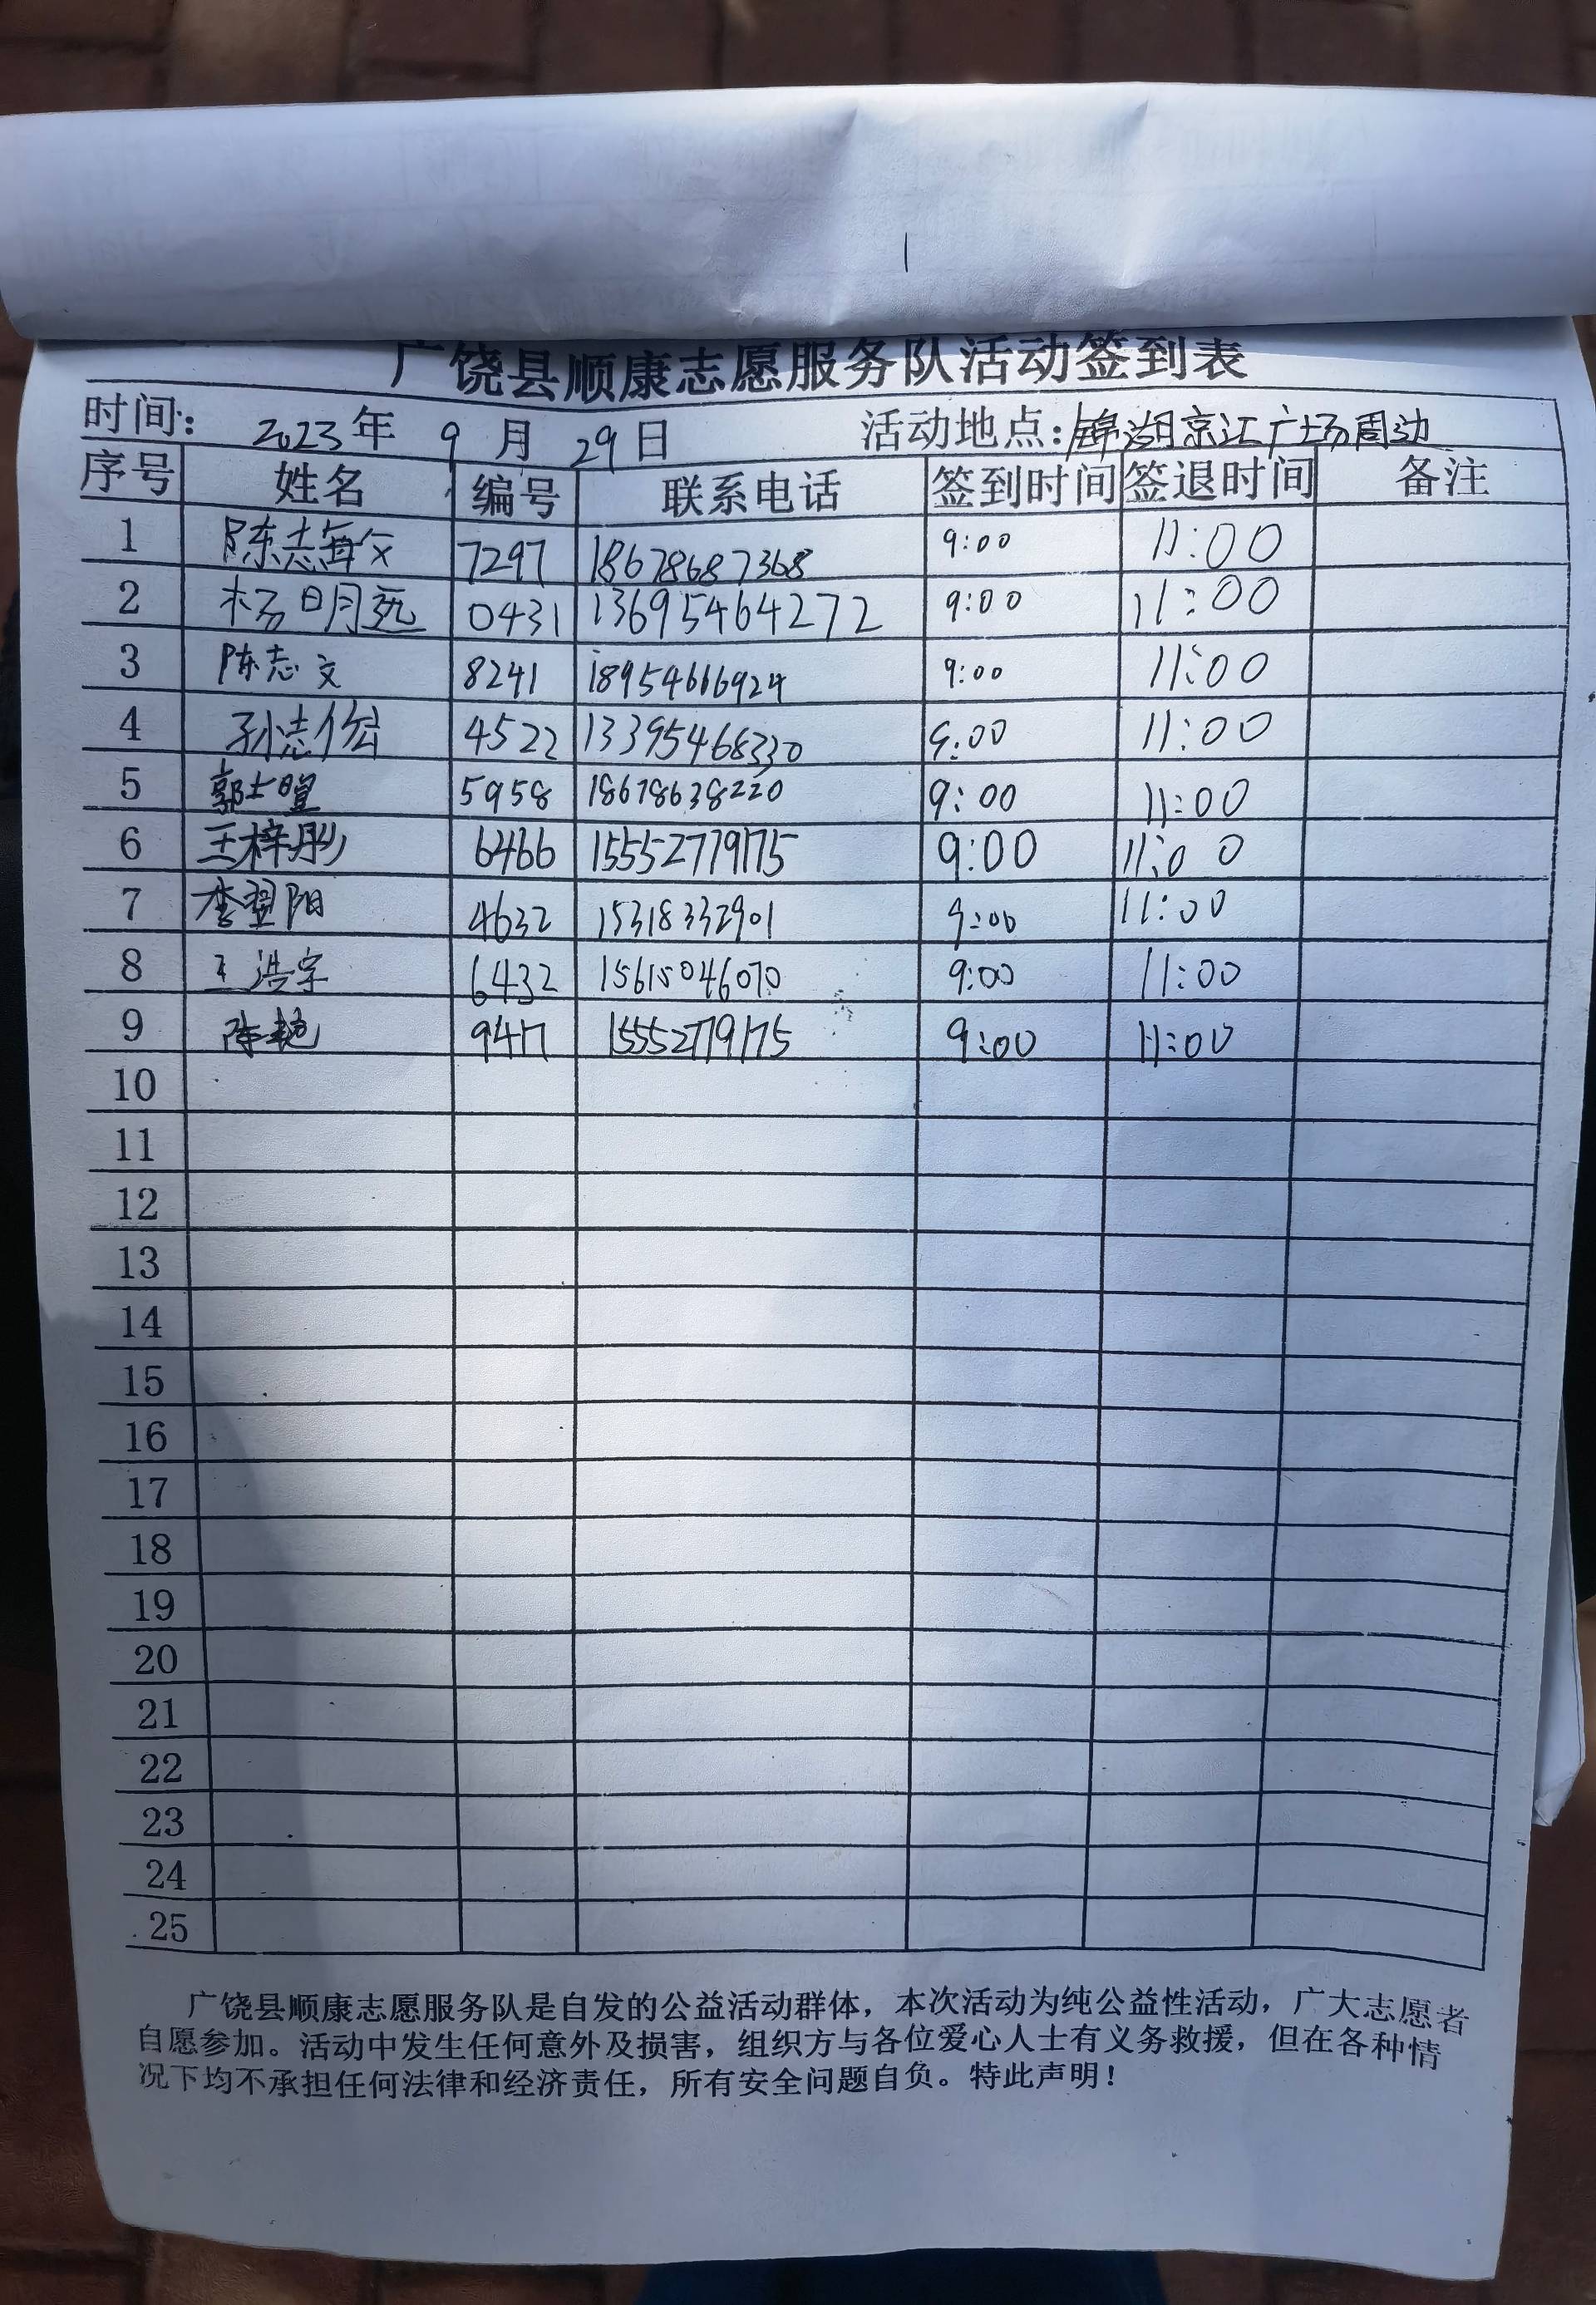 1
广饶县顺康志愿服务队活动签到表
时间: 2023年 9 月 29日 活动地点:锦湖京江广场周边
序号 姓名 编号 联系电话 签到时间 签退时间 备注
1 陈志敏 7297 18678687368 9:00 11:00
2 杨明远 0431 13695464272 9:00 11:00
3 陈志文 8241 18954666924 9:00 11:00
4 孙志 4522 13395468330 9:00 11:00
5 郭士暄 5958 18678638220 9:00 11:00
6 王梓彤 6466 15552779175 9:00 11:00
7 李翌阳 4632 15318332901 9:00 11:00
8 王浩宇 6432 15615046070 9:00 11:00
9 陈艳 9417 15552779175 9:00 11:00
10
11
12
13
14
15
16
17
18
19
20
21
22
23
24
25
广饶县顺康志愿服务队是自发的公益活动群体，本次活动为纯公益性活动，广大志愿者
自愿参加。活动中发生任何意外及损害，组织方与各位爱心人士有义务救援，但在各种情
况下均不承担任何法律和经济责任，所有安全问题自负。特此声明！